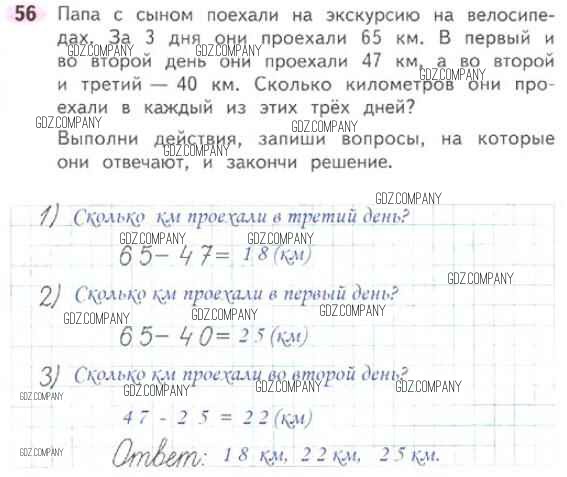 56 Папа с сыном поехали на экскурсию на велосипе-
дах. За 3 дня они проехали 65 км. В первый и
GDZ.COMPANY GDZ.COMPANY GDZ.COMPANY
во второй день они проехали 47 км, а во второй
GDZ.COMPANY
и третий — 40 км. Сколько километров они про-
ехали в каждый из этих трёх дней?
GDZ.COMPANY GDZ.COMPANY
Выполни действия, запиши вопросы, на которые
GDZ.COMPANY GDZ.COMPANY
они отвечают, и закончи решение.
GDZ.COMPANY
1) Сколько км проехали в третий день?
GDZ.COMPANY GDZ.COMPANY
65 – 47 = 18 (км)
GDZ.COMPANY
2) Сколько км проехали в первый день?
GDZ.COMPANY GDZ.COMPANY
65 – 40 = 25 (км)
3) Сколько км проехали во второй день?
GDZ.COMPANY GDZ.COMPANY GDZ.COMPANY GDZ.COMPANY
47 - 25 = 22 (км)
Ответ: 18 км, 22 км, 25 км.
GDZ.COMPANY